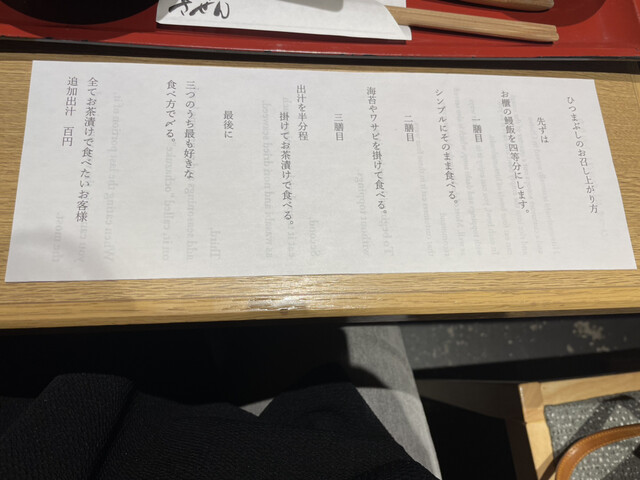 ひつまぶしのお召し上がり方
先ずは
お櫃の鰻飯を四等分にします。
一膳目
シンプルにそのまま食べる。
二膳目
海苔やワサビを掛けて食べる。
三膳目
出汁を半分程
掛けてお茶漬けで食べる。
最後に
三つのうち最も好きな
食べ方で〆る。
全てお茶漬けで食べたいお客様
追加出汁 百円